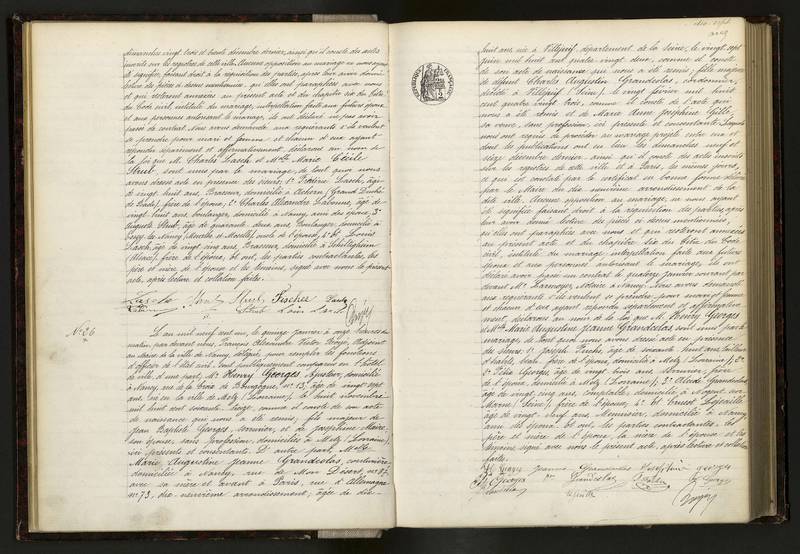 dimanches vingt trois et trente décembre dernier, ainsi qu'il conste des actes
inscrits sur les registres de cette ville. Aucune opposition au mariage ne nous ayant
été signifiée, faisant droit à la réquisition des parties, après leur avoir donné
lecture des pièces ci dessus mentionnées, qu'elles ont paraphées avec nous
et qui resteront annexées au présent acte et du chapitre six du titre
du Code civil, intitulé du mariage, interpellation faite aux futurs époux
et aux personnes autorisant le mariage, ils ont déclaré n'avoir pas
passé de contrat. Nous avons demandé aux requérants s'ils veulent
se prendre pour mari et femme et chacun d'eux ayant
répondu séparément et affirmativement, déclarons au nom de
la loi que M. Charles Lasch et Mlle Marie Cécile
Strub, sont unis par le mariage, de tout quoi nous
avons dressé acte en présence des sieurs: 1° Lasch, âgé
de vingt huit ans, Brasseur, domicilié à Achern (Grand Duché
de Bade), frère de l'époux; 2° Charles Alexandre Labonne, âgé de
vingt huit ans, boulanger, domicilié à Nancy, ami des époux; 3°
Auguste Strub, âgé de quarante deux ans, Boulanger, domicilié à
(Meurthe et Moselle), oncle de l'épouse; 4° et Louis
Lasch, âgé de vingt cinq ans, Brasseur, domicilié à Schiltigheim
(Alsace), frère de l'époux. Et ont, les parties contractantes, les
père et mère de l'épouse et les témoins, signé avec nous le présent
acte, après lecture et collation faites.
Strub Fischer
Strub Louis Lasch
N° 26
L'an mil neuf cent un, le quinze janvier à onze heures du
matin, par devant nous, François Alexandre Victor Adjoint
au Maire de la ville de Nancy, délégué pour remplir les fonctions
d'officier de l'état civil, sont publiquement comparus en l'hôtel
de ville, d'une part, M. Henry Georges, Ajusteur, domicilié
à Nancy, rue de la Croix de Bourgogne, n° 13, âgé de vingt sept
ans, né en la ville de Metz (Lorraine), le huit novembre
mil huit cent soixante treize, comme il conste de son acte
de naissance qui nous a été remis, fils majeur de
Jean Baptiste Georges, serrurier, et de Joséphine Maire,
son épouse, sans profession, domiciliés à Metz (Lorraine),
ici présents et consentants. D'autre part, Mlle
Marie Augustine Jeanne Grandcolas, couturière
domiciliée à Nancy, rue de Mon Désert, n° 37
avec sa mère et avant à Paris, rue d'Allemagne
n° 73, dix-neuvième arrondissement, âgée de dix-
huit ans, née à Villejuif, département de la Seine, le vingt sept
juin mil huit cent quatre vingt deux, comme il conste
de son acte de naissance qui nous a été remis, fille majeure
de défunt Charles Augustin Grandcolas, cordonnier,
décédé à Villejuif (Seine), le vingt février mil huit
cent quatre vingt trois, comme il conste de l'acte qui
nous a été remis et de Marie Anne Joséphine Gille
sa veuve, sans profession, ici présente et consentante. Lesquels
nous ont requis de procéder au mariage projeté entre eux et
dont les publications ont eu lieu les dimanches neuf et
seize décembre dernier, ainsi qu'il conste des actes inscrits
sur les registres de cette ville et à Paris, les mêmes jours,
ce qui est constaté par le certificat en bonne forme délivré
par le Maire du dix neuvième arrondissement de la
dite ville. Aucune opposition au mariage, ne nous ayant
été signifiée faisant droit à la réquisition des parties, après
leur avoir donné lecture des pièces ci dessus mentionnées,
qu'elles ont paraphées avec nous et qui resteront annexées
au présent acte et du chapitre six du titre du Code
civil, intitulé du mariage, interpellation faite aux futurs
époux et aux personnes autorisant le mariage, ils ont
déclaré avoir passé un contrat le quatorze janvier courant par
devant Me Notaire à Nancy. Nous avons demandé
aux requérants s'ils veulent se prendre pour mari et femme
et chacun d'eux ayant répondu séparément et affirmative-
ment, déclarons au nom de la loi que M. Henry Georges
et Mlle Marie Augustine Jeanne Grandcolas sont unis par le
mariage de tout quoi nous avons dressé acte en présence
des sieurs: 1° Joseph âgé de soixante huit ans, tailleur
d'habits, domicilié à Metz (Lorraine); 2°
Félix Georges, âgé de vingt trois ans, Serrurier, frère
de l'époux, domicilié à Metz (Lorraine); 3° Alcide Grandcolas,
âgé de vingt cinq ans, comptable, domicilié à Nogent sur
Marne (Seine), frère de l'épouse; 4° et Ernest
âgé de vingt neuf ans, Menuisier, domicilié à Nancy,
ami des époux. Et ont, les parties contractantes, les
père et mère de l'époux, la mère de l'épouse et les
témoins signé avec nous le présent acte, après lecture et collation
faites.
Jeanne Grandcolas Joséphine Georges
Georges Grandcolas